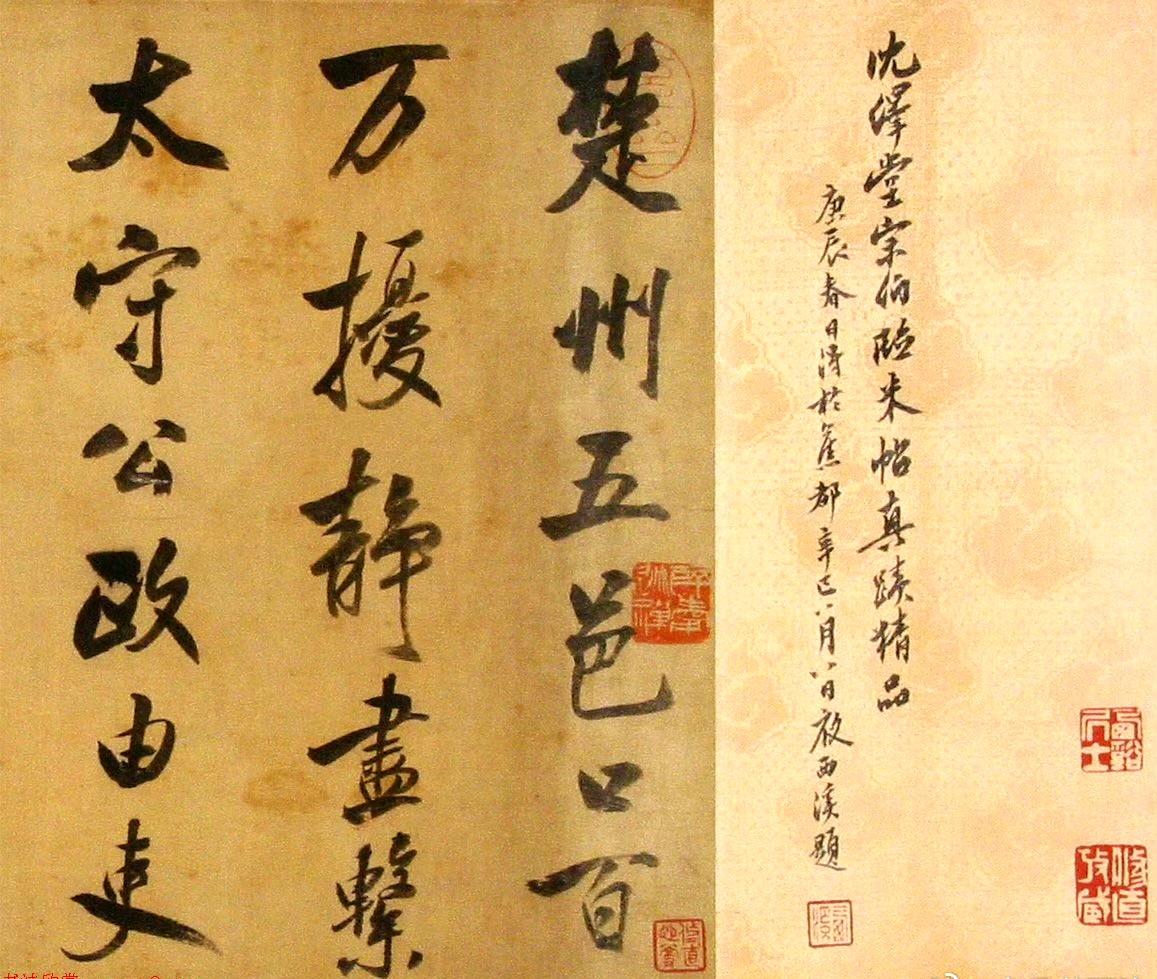 沈绎堂宗伯臨米帖真蹟精品
庚辰春日得於舊都辛巳八月八日夜西溪題
楚州五邑口百
万擾静盡繫
太守公政由吏